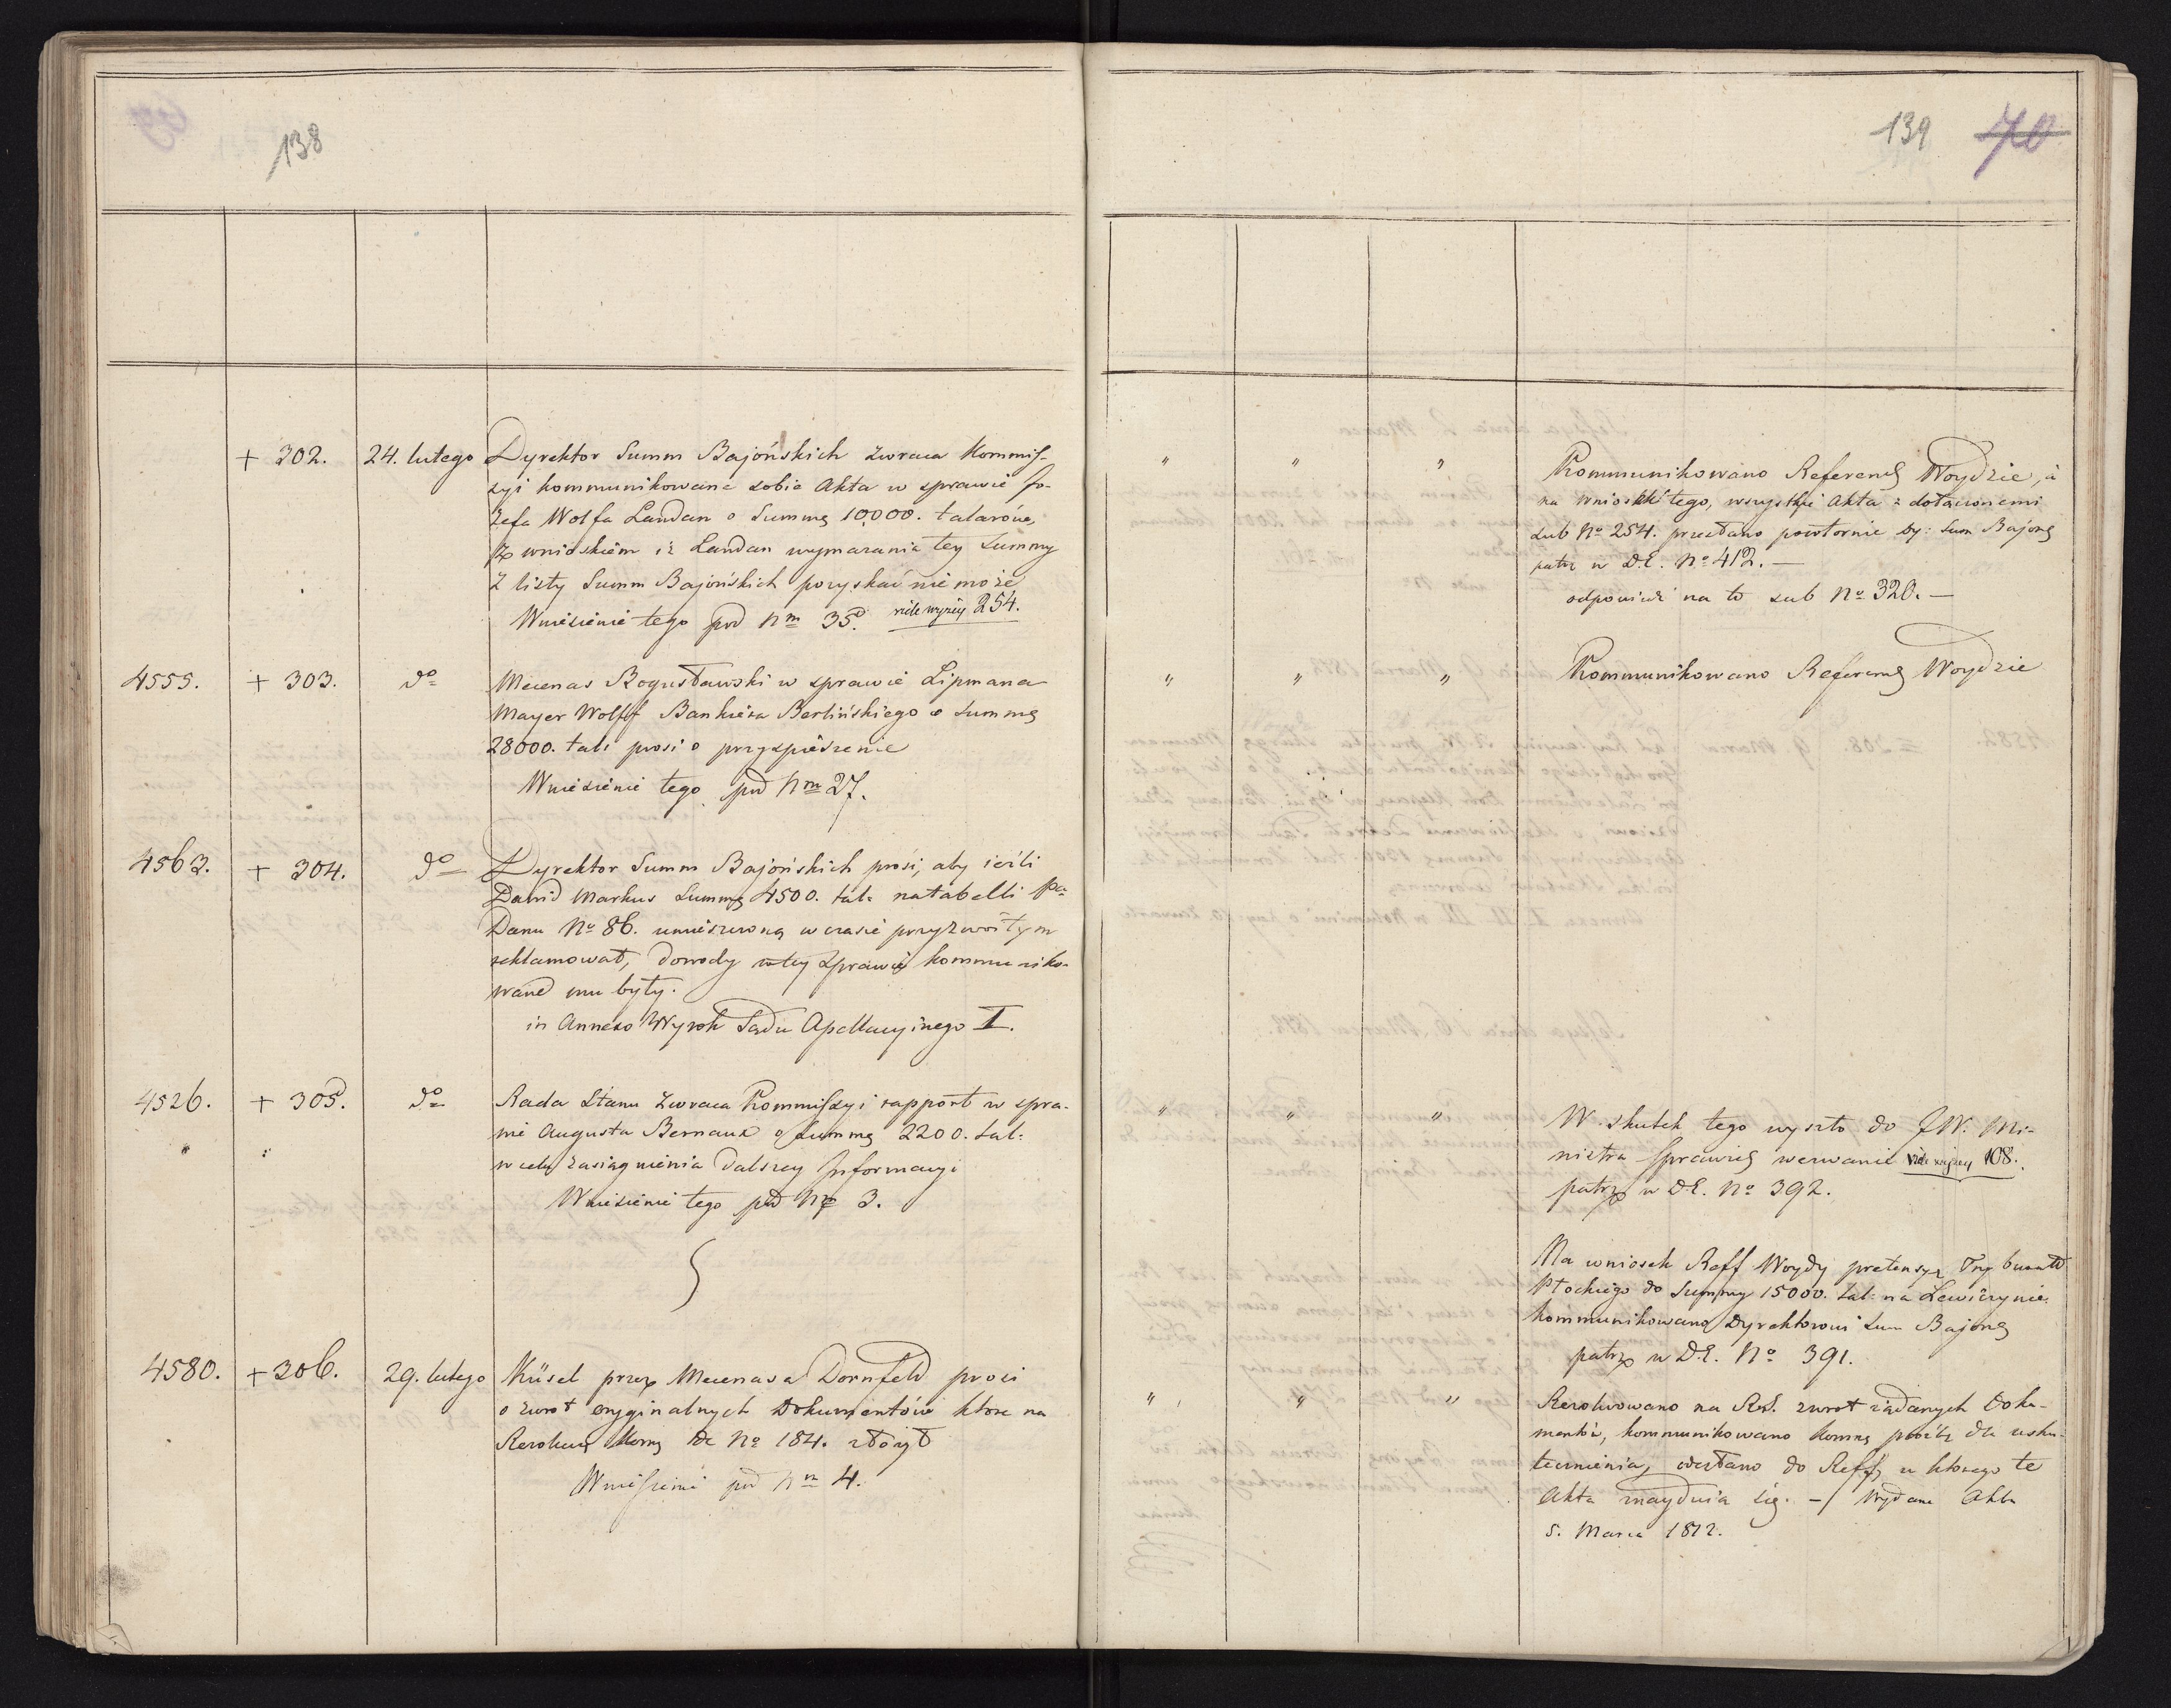 138
+ 302. 24. lutego Dyrektor Summ Bajońskich zwraca Kommis-
syi kommunikowane sobie Akta w sprawie Jo-
zefa Wolfa Landau o Summę 10,000. talarów,
z wnioskiem iż Landau wymazania tey Summy
z listy Summ Bajońskich pozyskać nie może
Wniesienie tego pod Nm 35. vide wyzey 254.
4555. + 303. do Mecenas Bogusławski w sprawie Lipmana
Mayer Wolff Bankiera Berlińskiego o summę
28000. tal: prosi o przyspieszenie
Wniesienie tego pod Nm 27.
4563. + 304. do Dyrektor Summ Bajońskich prosi, aby ieźli
Dawid Markus Summę 4500. tal: na tabelli po-
Danu No 86. umieszczoną w czasie przyzwoitym
reklamował, dowody w tey sprawie kommuniko-
wane mu były.
in Annexo Wyrok Sądu Apellacyinego I.
4526. + 305. do Rada Stanu zwraca Kommissyi rapport w spra-
wie Augusta Bernaux o summę 2200. tal:
w celu zasiągnienia dalszey Informacyi
Wniesienie tego pod No 3.
4580. + 306. 29. lutego Küsel przez Mecenasa Dornfeld prosi
o zwrot oryginalnych Dokumentów ktore na
Rezolucyą Komsy de No 184. złożył
Wniesienie pod Nm 4.
139 70
" " " Kommunikowano Referendę Woydzie, a
na wniosek tego, wszystkie Akta z dołączonemi
sub No 254. przesłano powtornie Dy: Sum Bajonę
patrz w D.E. No 412. —
odpowiedź na to sub No 320. —
" " " Kommunikowano Referendę Woydzie
" " " W skutek tego wyszło do JW. Mi-
nistra Sprawied wezwanie vide wyzey 108.
patrz w D.E. No 392.
Na wniosek Reff Woydy pretensyą Trybunału
Płockiego do Summy 15000. tal: na Lewiczynie
kommunikowano Dyrektorowi Sum Bajonę
patrz w D.E. No 391.
" " " Rezolwowano na Res. zwrot żądanych Doku-
mentów, kommunikowano Komsę prośbę dla usku-
tecznienia, odesłano do Reff, u ktorego te
Akta znayduią się. —/ Wydane Akta
5. Marca 1812.